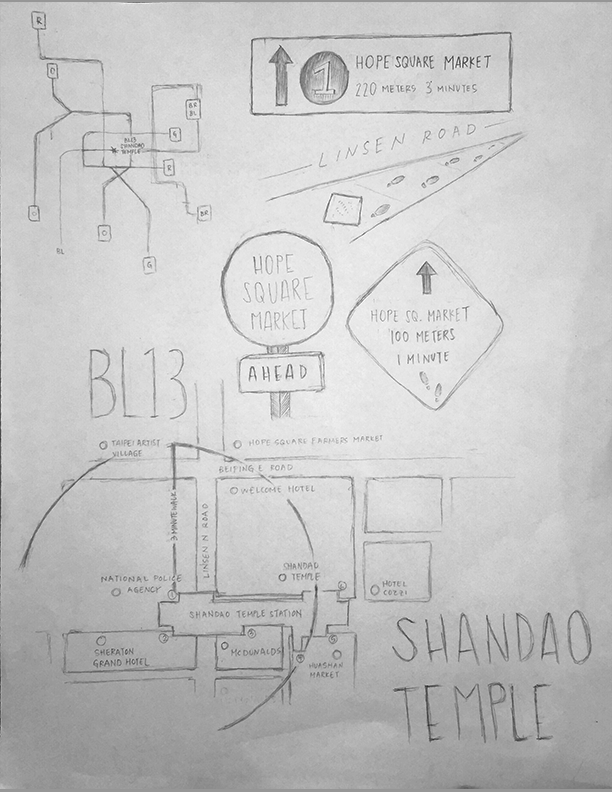 R
O
BR
BL
BL13
SHANDAO
TEMPLE
G
R
O
O
BL
G
BR
1
HOPE SQUARE MARKET
220 METERS 3 MINUTES
LINSEN ROAD
HOPE
SQUARE
MARKET
AHEAD
HOPE SQ. MARKET
100 METERS
1 MINUTE
BL13
TAIPEI ARTIST
VILLAGE
HOPE SQUARE FARMERS MARKET
BEIPING E ROAD
WELCOME HOTEL
3 MINUTE WALK
LINSEN N ROAD
NATIONAL POLICE
AGENCY
SHANDAO
TEMPLE
HOTEL
COZZI
1
6
SHANDAO TEMPLE STATION
2
3
4
5
SHERATON
GRAND HOTEL
MCDONALDS
HUASHAN
MARKET
SHANDAO
TEMPLE